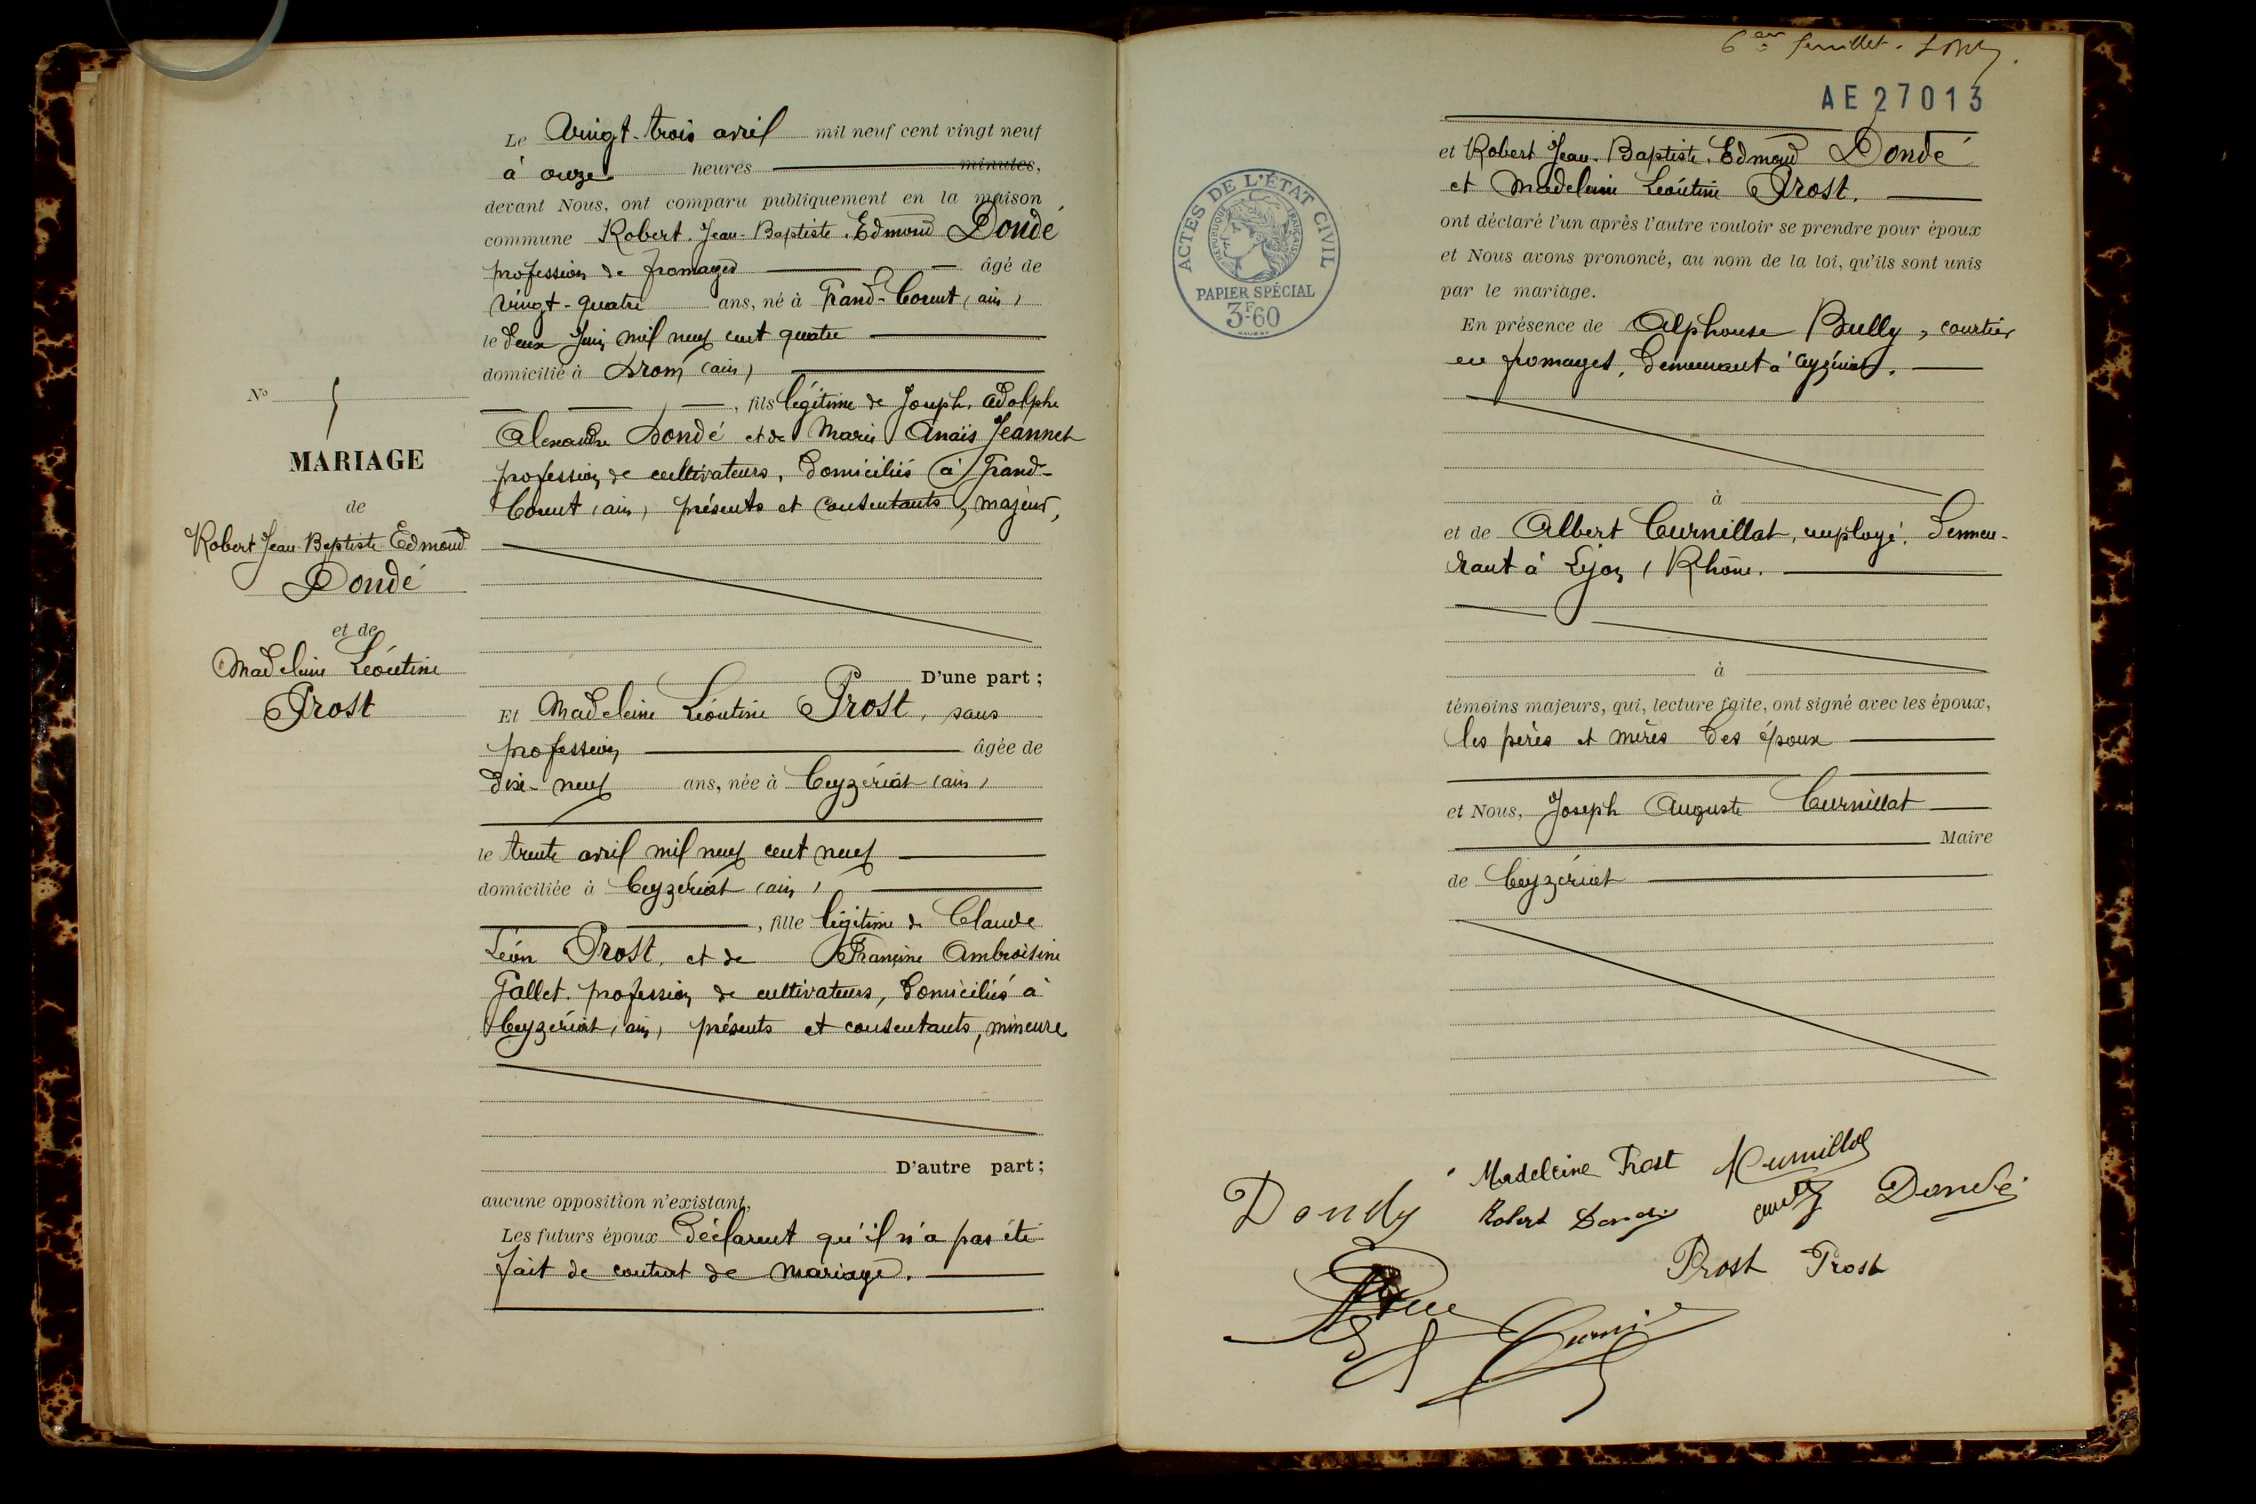 Le Vingt-trois avril mil neuf cent vingt neuf
à onze heures minutes,
devant Nous, ont comparu publiquement en la maison
commune Robert Jean-Baptiste Edmond Dondé
profession de fromager âgé de
vingt-quatre ans, né à Grand-Corent (ain)
le deux Juin mil neuf cent quatre
domicilié à Drom (ain)
, fils légitime de Joseph Adolphe
Alexandre Dondé et de Marie Anaïs Jeannet
profession de cultivateurs, domiciliés à Grand-
Corent (ain) présents et consentants, majeur,
D'une part ;
Et Madeleine Léontine Prost, sans
profession âgée de
dix-neuf ans, née à Ceyzériat (ain)
le trente avril mil neuf cent neuf
domiciliée à Ceyzériat (ain)
, fille légitime de Claude
Léon Prost, et de Francine Ambroisine
Gallet. profession de cultivateurs, domiciliés à
Ceyzériat (ain) présents et consentants, mineure
D'autre part ;
aucune opposition n'existant,
Les futurs époux déclarent qu'il n'a pas été
fait de contrat de mariage.
N° 5
MARIAGE
de
Robert Jean-Baptiste Edmond
Dondé
et de
Madeleine Léontine
Prost
6e feuillet.
AE27013
et Robert Jean-Baptiste Edmond Dondé
et Madeleine Léontine Prost.
ont déclaré l'un après l'autre vouloir se prendre pour époux
et Nous avons prononcé, au nom de la loi, qu'ils sont unis
par le mariage.
En présence de Alphonse Bully, courtier
en fromages, demeurant à Ceyzériat.
à
et de Albert Curnillat, employé, demeu-
rant à Lyon (Rhône.
à
témoins majeurs, qui, lecture faite, ont signé avec les époux,
les pères et mères des époux
et Nous, Joseph Auguste Curnillat
Maire
de Ceyzériat
ACTES DE L'ÉTAT CIVIL
RÉPUBLIQUE FRANÇAISE
PAPIER SPÉCIAL
3F60
Madeleine Prost Curnillat
Dondé Robert Dondé Dondé
Prost Prost